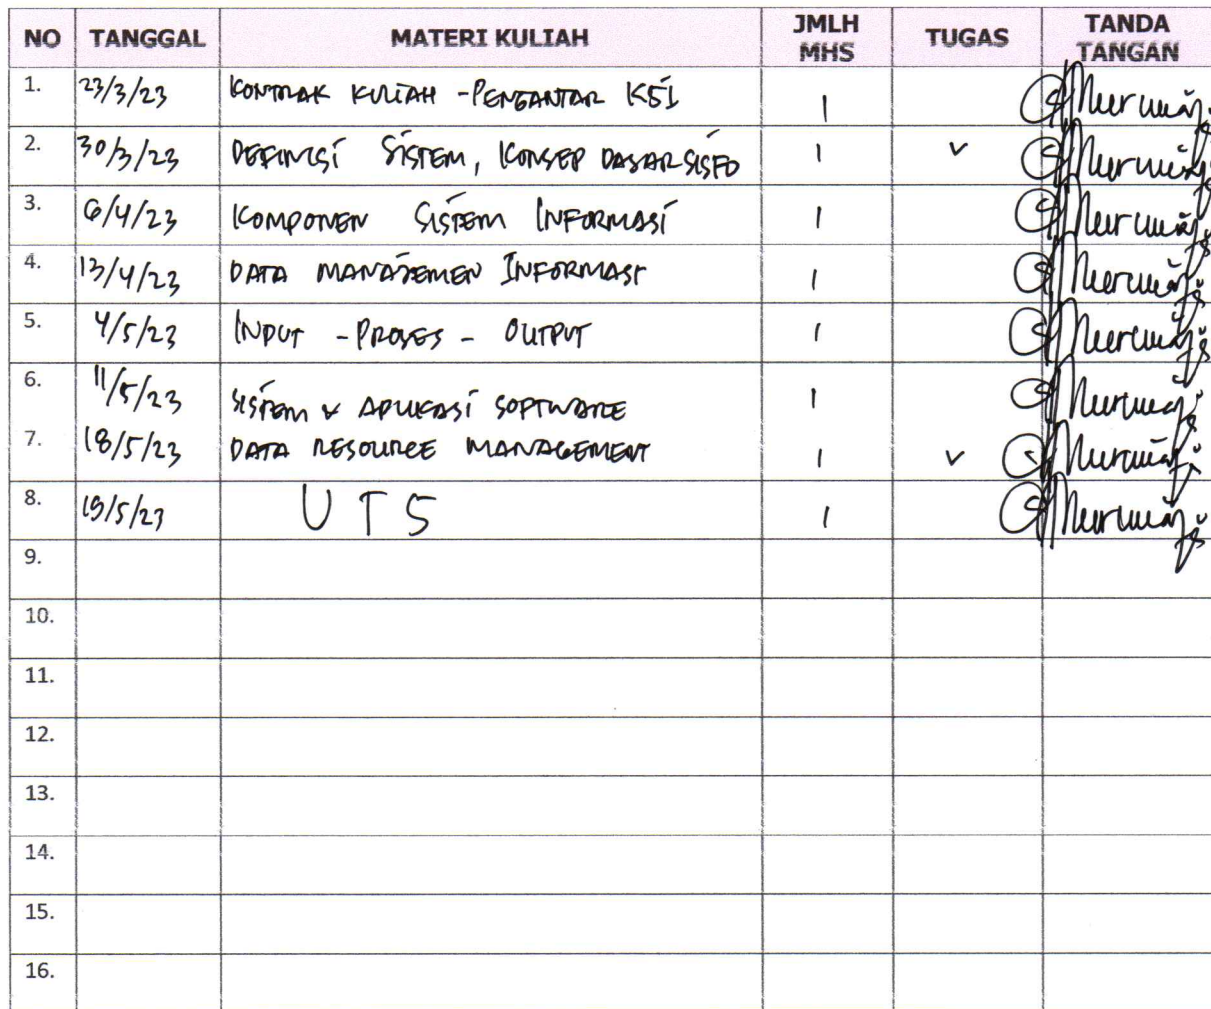 NO TANGGAL MATERI KULIAH JMLH MHS TUGAS TANDA TANGAN
1. 23/3/23 KONTRAK KULIAH - PENGANTAR KSI 1
2. 30/3/23 DEFINISI SISTEM, KONSEP DASAR SISFO 1 v
3. 6/4/23 KOMPONEN SISTEM INFORMASI 1
4. 13/4/23 DATA MANAJEMEN INFORMASI 1
5. 4/5/23 INPUT - PROSES - OUTPUT 1
6. 11/5/23 SISTEM & APLIKASI SOFTWARE 1
7. 18/5/23 DATA RESOURCE MANAGEMENT 1 v
8. 19/5/23 UTS 1
9.
10.
11.
12.
13.
14.
15.
16.